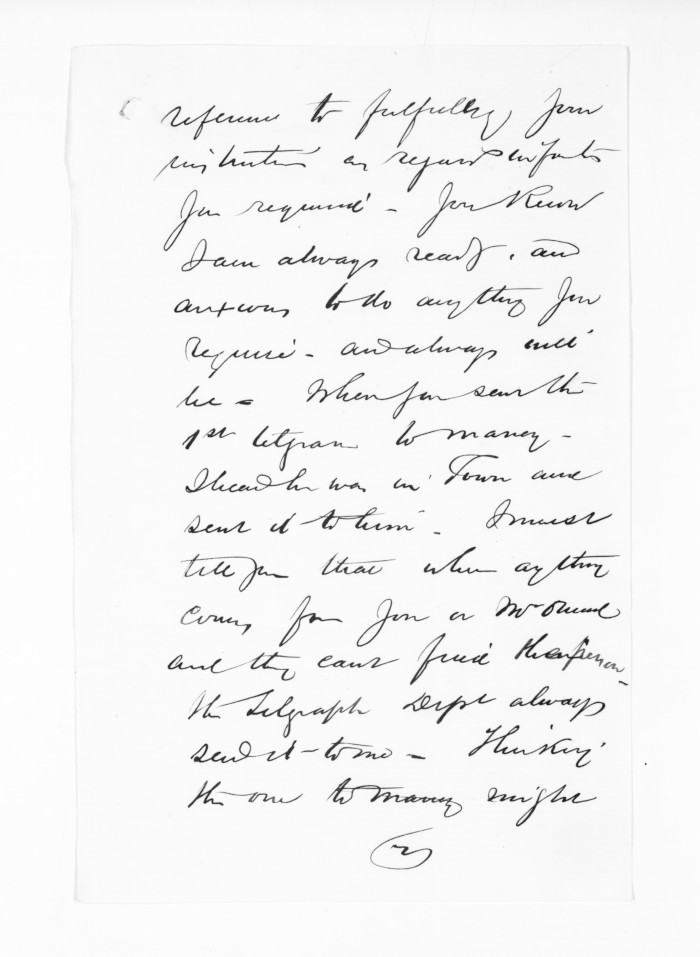 reference to fulfilling your
instructions as regards
you required - You know
I am always ready, and
anxious to do anything you
require - and always will
be - When you sent the
1st telegram to
I heard he was in Town and
sent it to him - I must
tell you that when anything
comes for you or Mr Ormond
and they cant find the person -
the Telegraph Dept always
send it to me - Thinking
the one to might
(2)